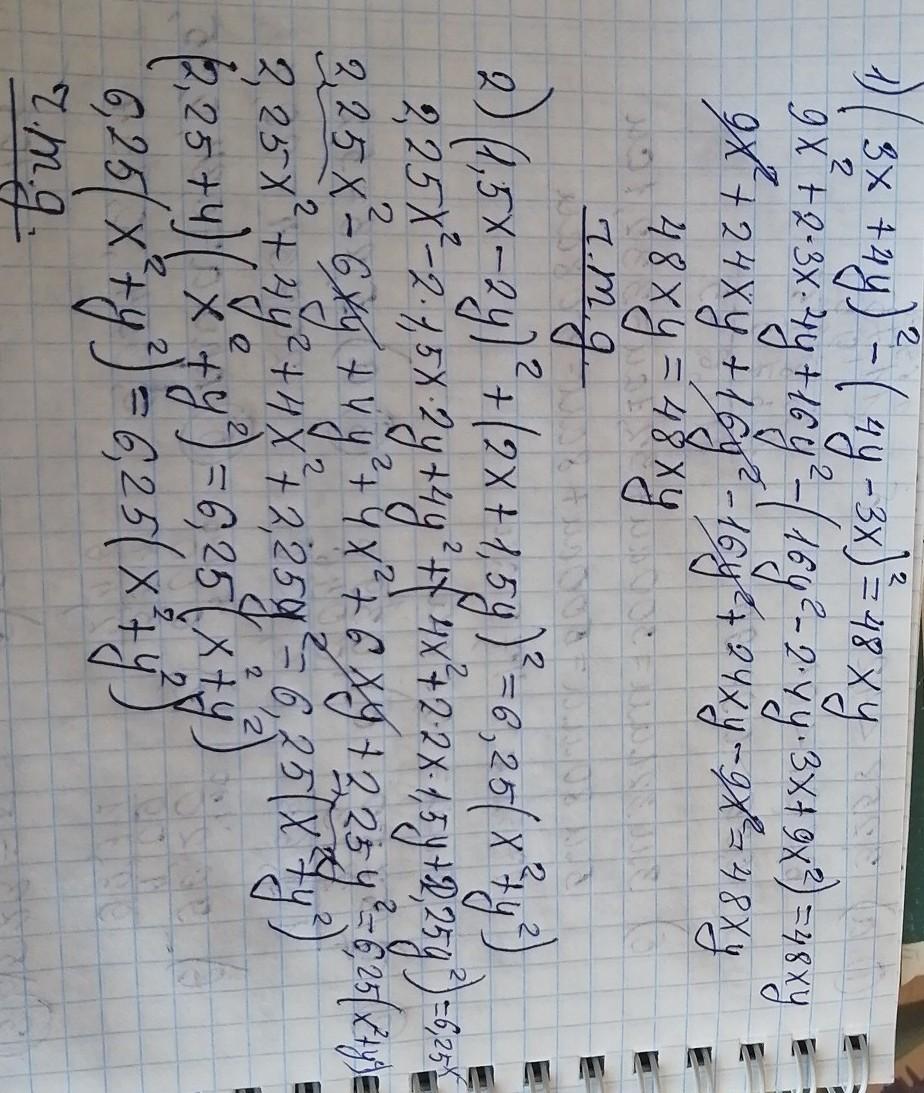 1) (3x + 4y)² - (4y - 3x)² = 48xy
9x² + 2·3x·4y + 16y² - (16y² - 2·4y·3x + 9x²) = 48xy
9x² + 24xy + 16y² - 16y² + 24xy - 9x² = 48xy
48xy = 48xy
ч.т.д.
2) (1,5x - 2y)² + (2x + 1,5y)² = 6,25(x² + y²)
2,25x² - 2·1,5x·2y + 4y² + (4x² + 2·2x·1,5y + 2,25y²) = 6,25x
2,25x² - 6xy + 4y² + 4x² + 6xy + 2,25y² = 6,25(x² + y²)
2,25x² + 4y² + 4x² + 2,25y² = 6,25(x² + y²)
(2,25 + 4)(x² + y²) = 6,25(x² + y²)
6,25(x² + y²) = 6,25(x² + y²)
ч.т.д.